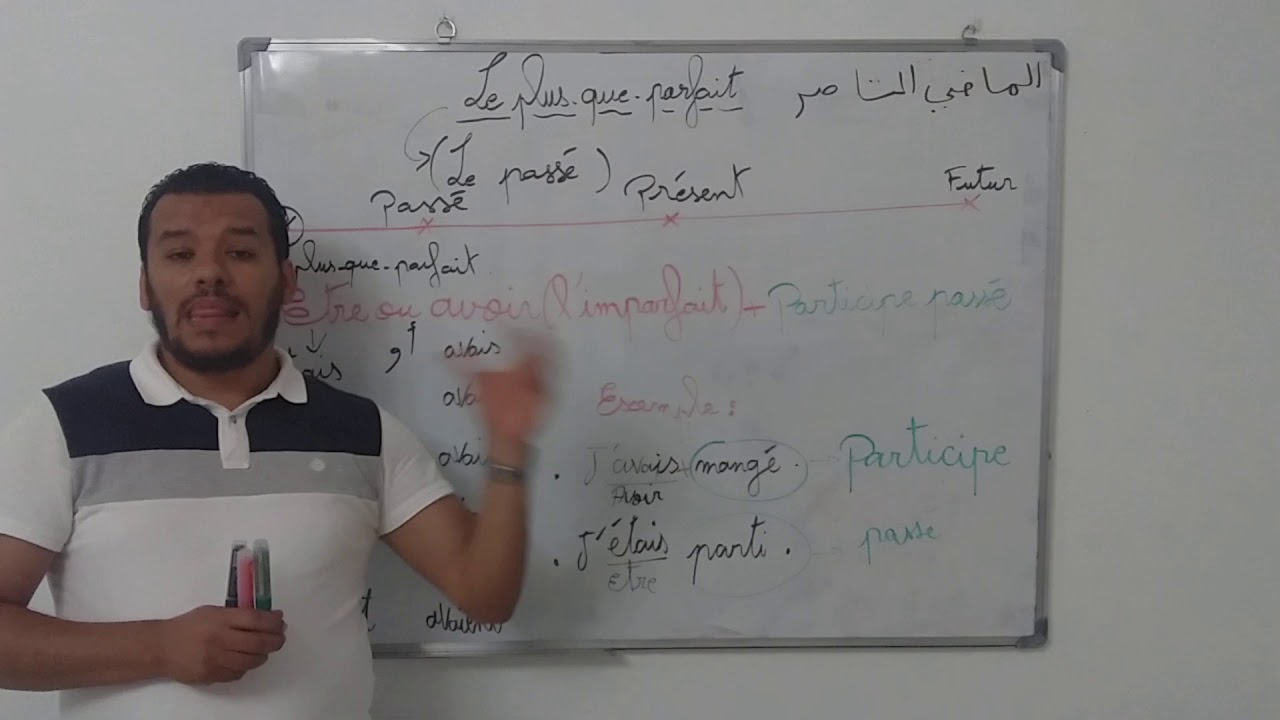 Le plus-que-parfait الماضي التاصر
(Le passé)
Passé Présent Futur
plus-que-parfait
être ou avoir (l'imparfait) + Participe passé
avais
Exemple :
. J'avais + mangé . Participe
Avoir
. J'étais parti . passé
etre
avaient